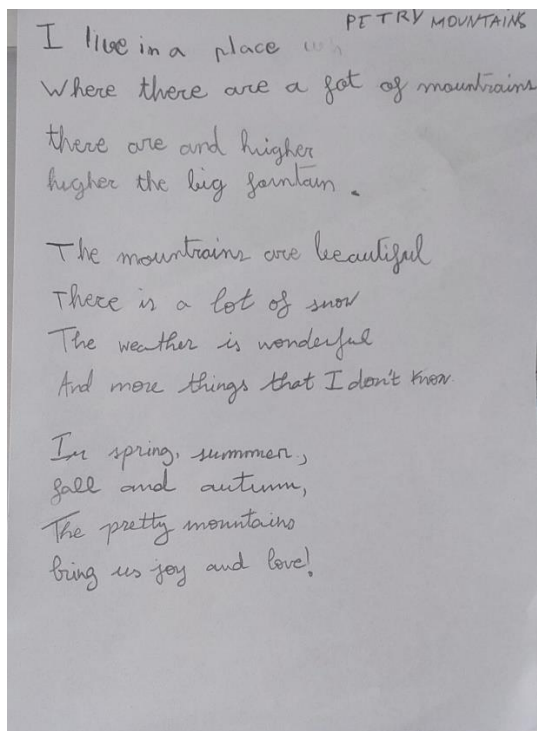 PETRY MOUNTAINS
I live in a place wh
Where there are a fot of mountrains
there are and huigher
huigher the big fountain.
The mountrains are beautiful
There is a lot of snow
The weather is wonderful
And more things that I don't know.
In spring, summer,
fall and autumn,
The pretty mountains
bring us joy and love!